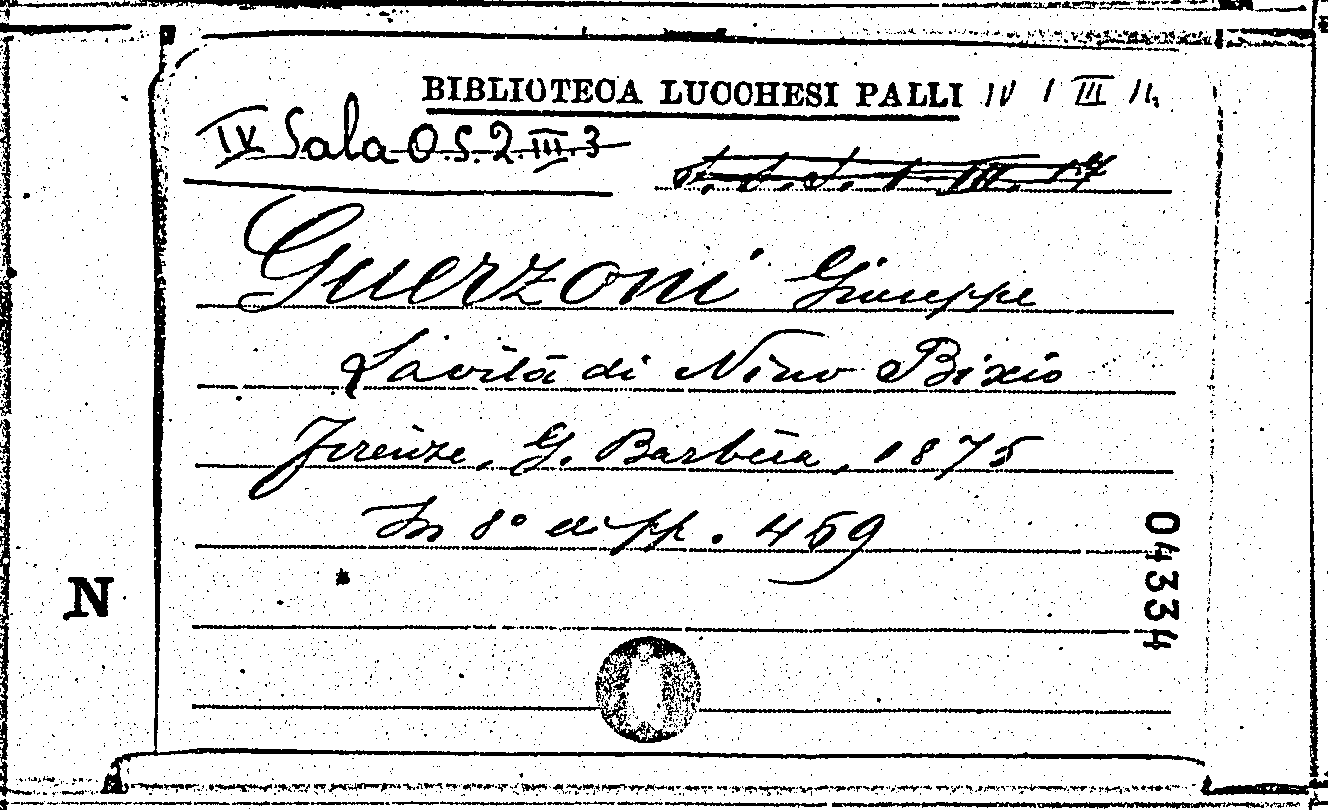 BIBLIOTECA LUCCHESI PALLI IV 1 III 14
IV Sala O.S. 2. III. 3
Guerzoni Giuseppe
La vita di Nino Bixio
Firenze, G. Barbèra, 1875
In 8° di pp. 459
04334
N